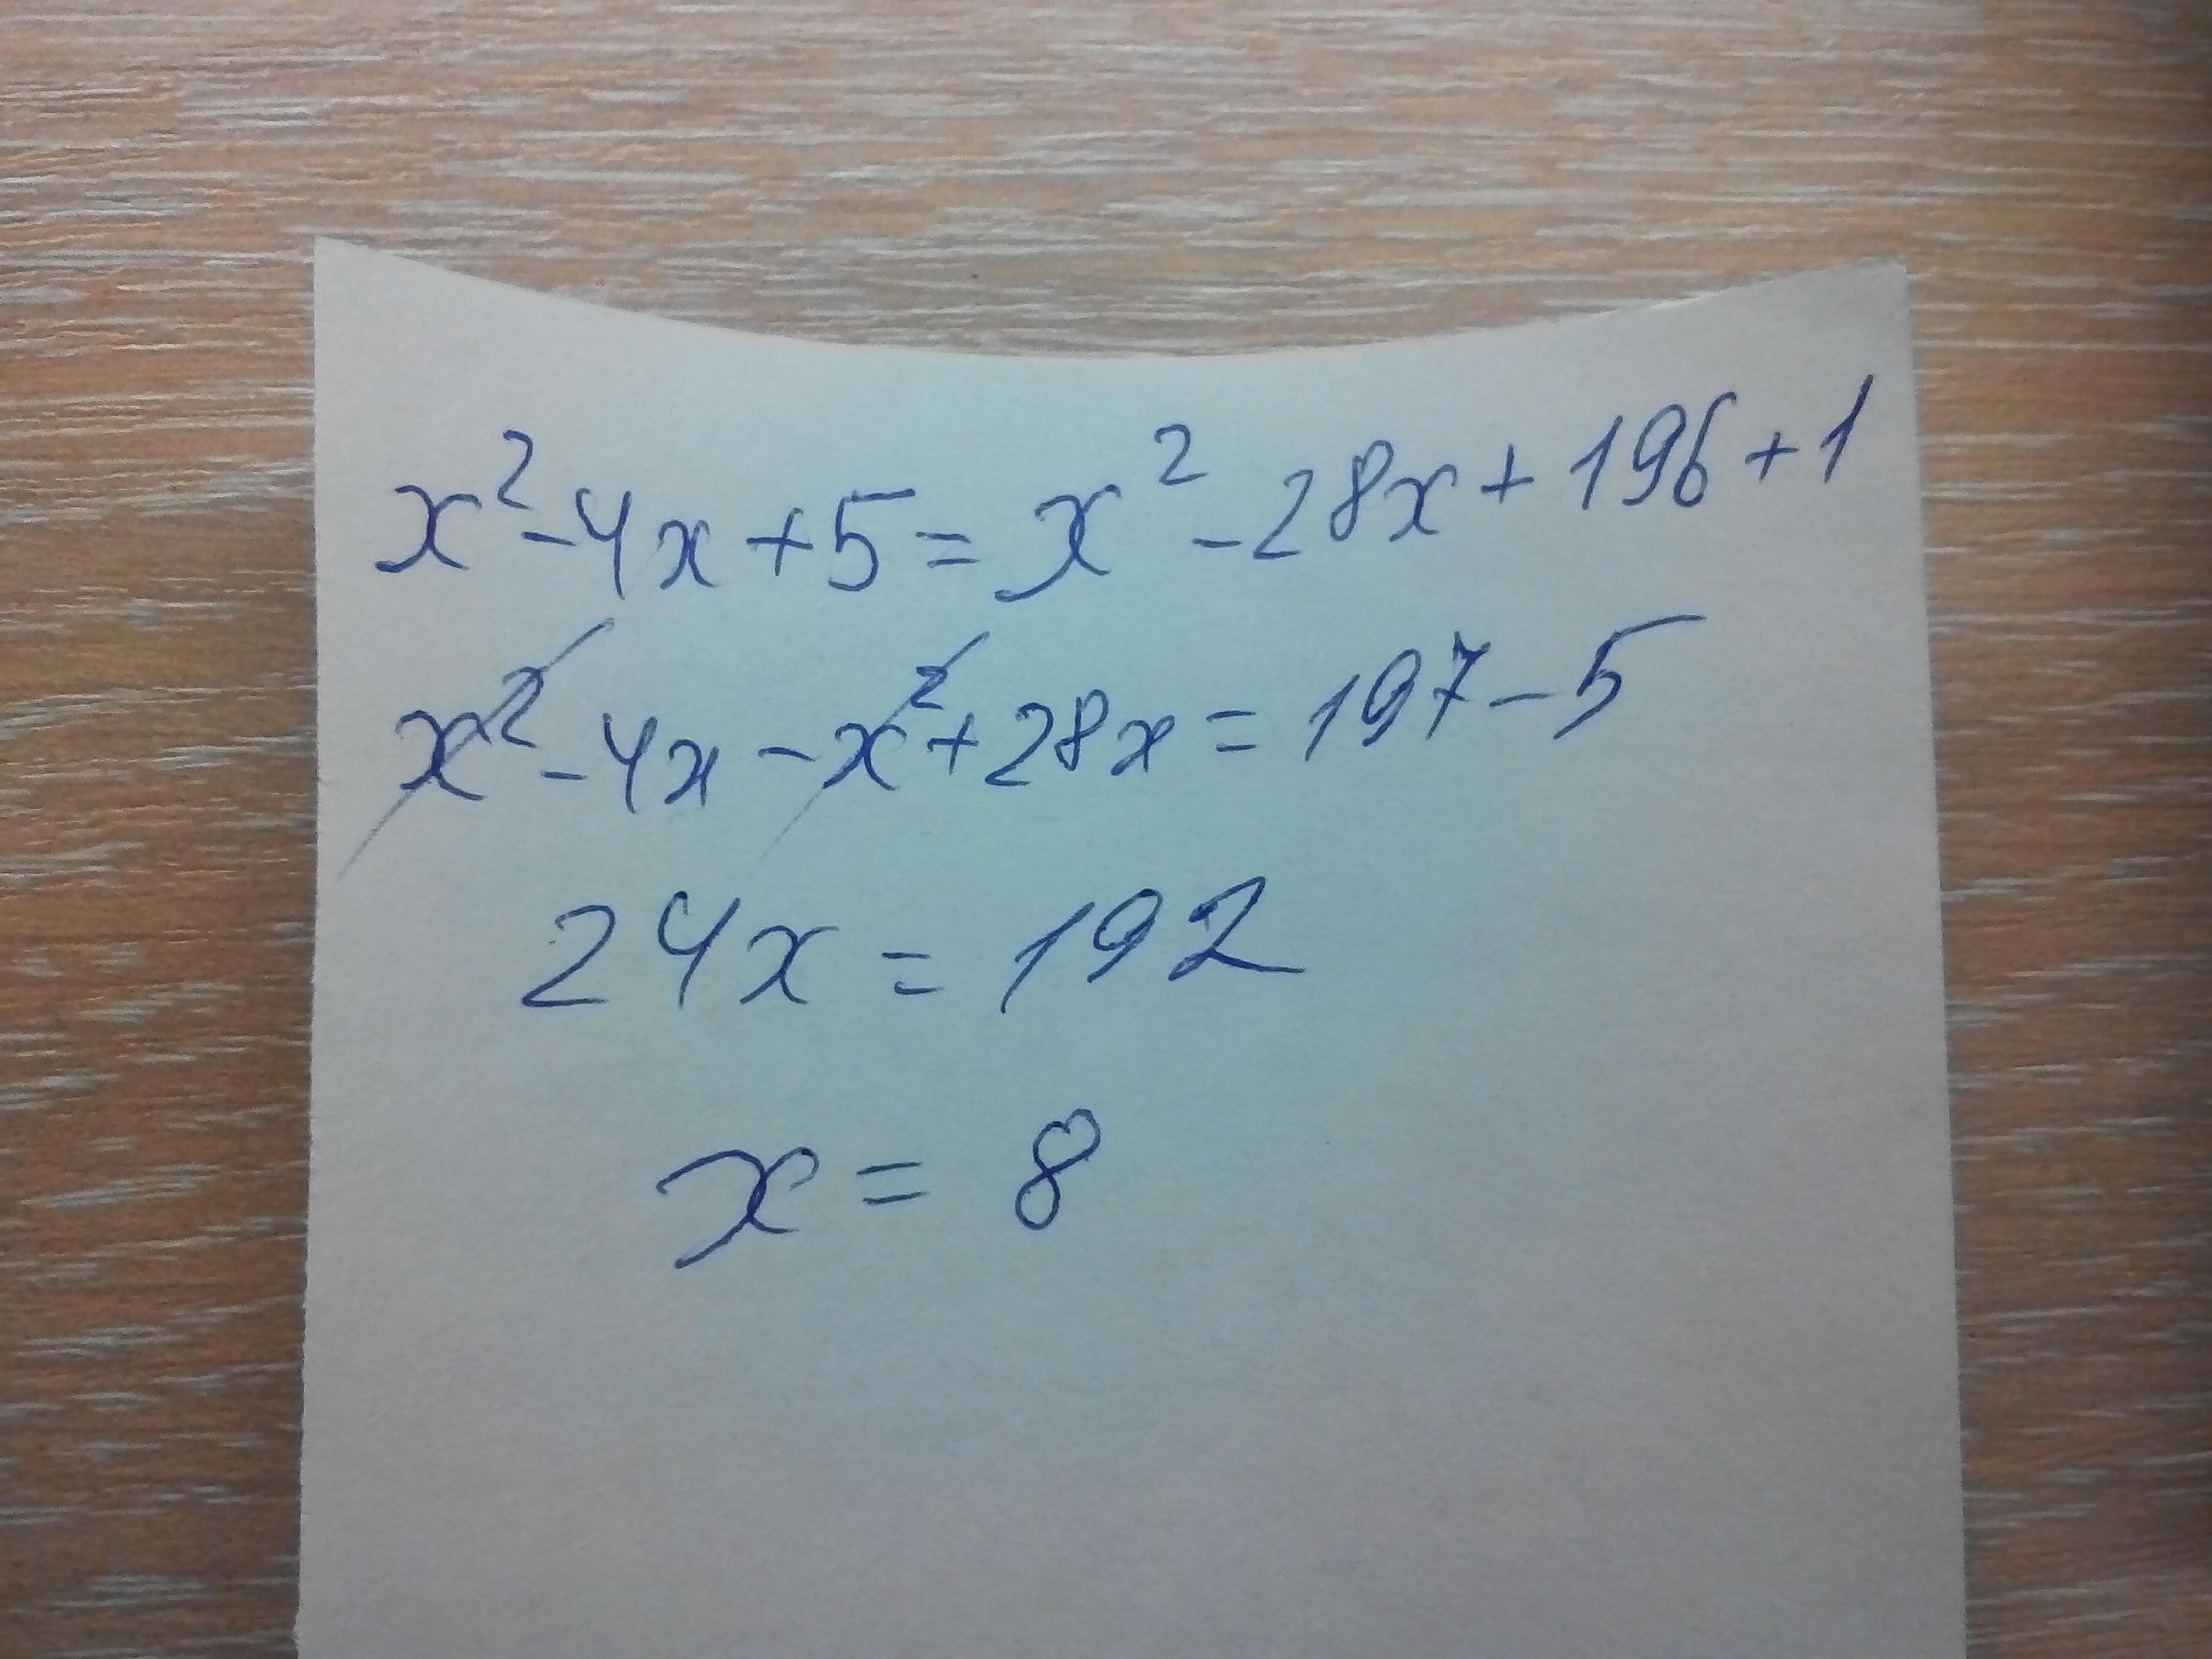 x² - 4x + 5 = x² - 28x + 196 + 1
x² - 4x - x² + 28x = 197 - 5
24x = 192
x = 8